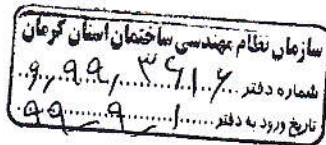 سازمان نظام مهندسی ساختمان استان کرمان
شماره دفتر ۹,۹۹,۳۶۱۶
تاریخ ورود به دفتر ۹۹_۹_۱